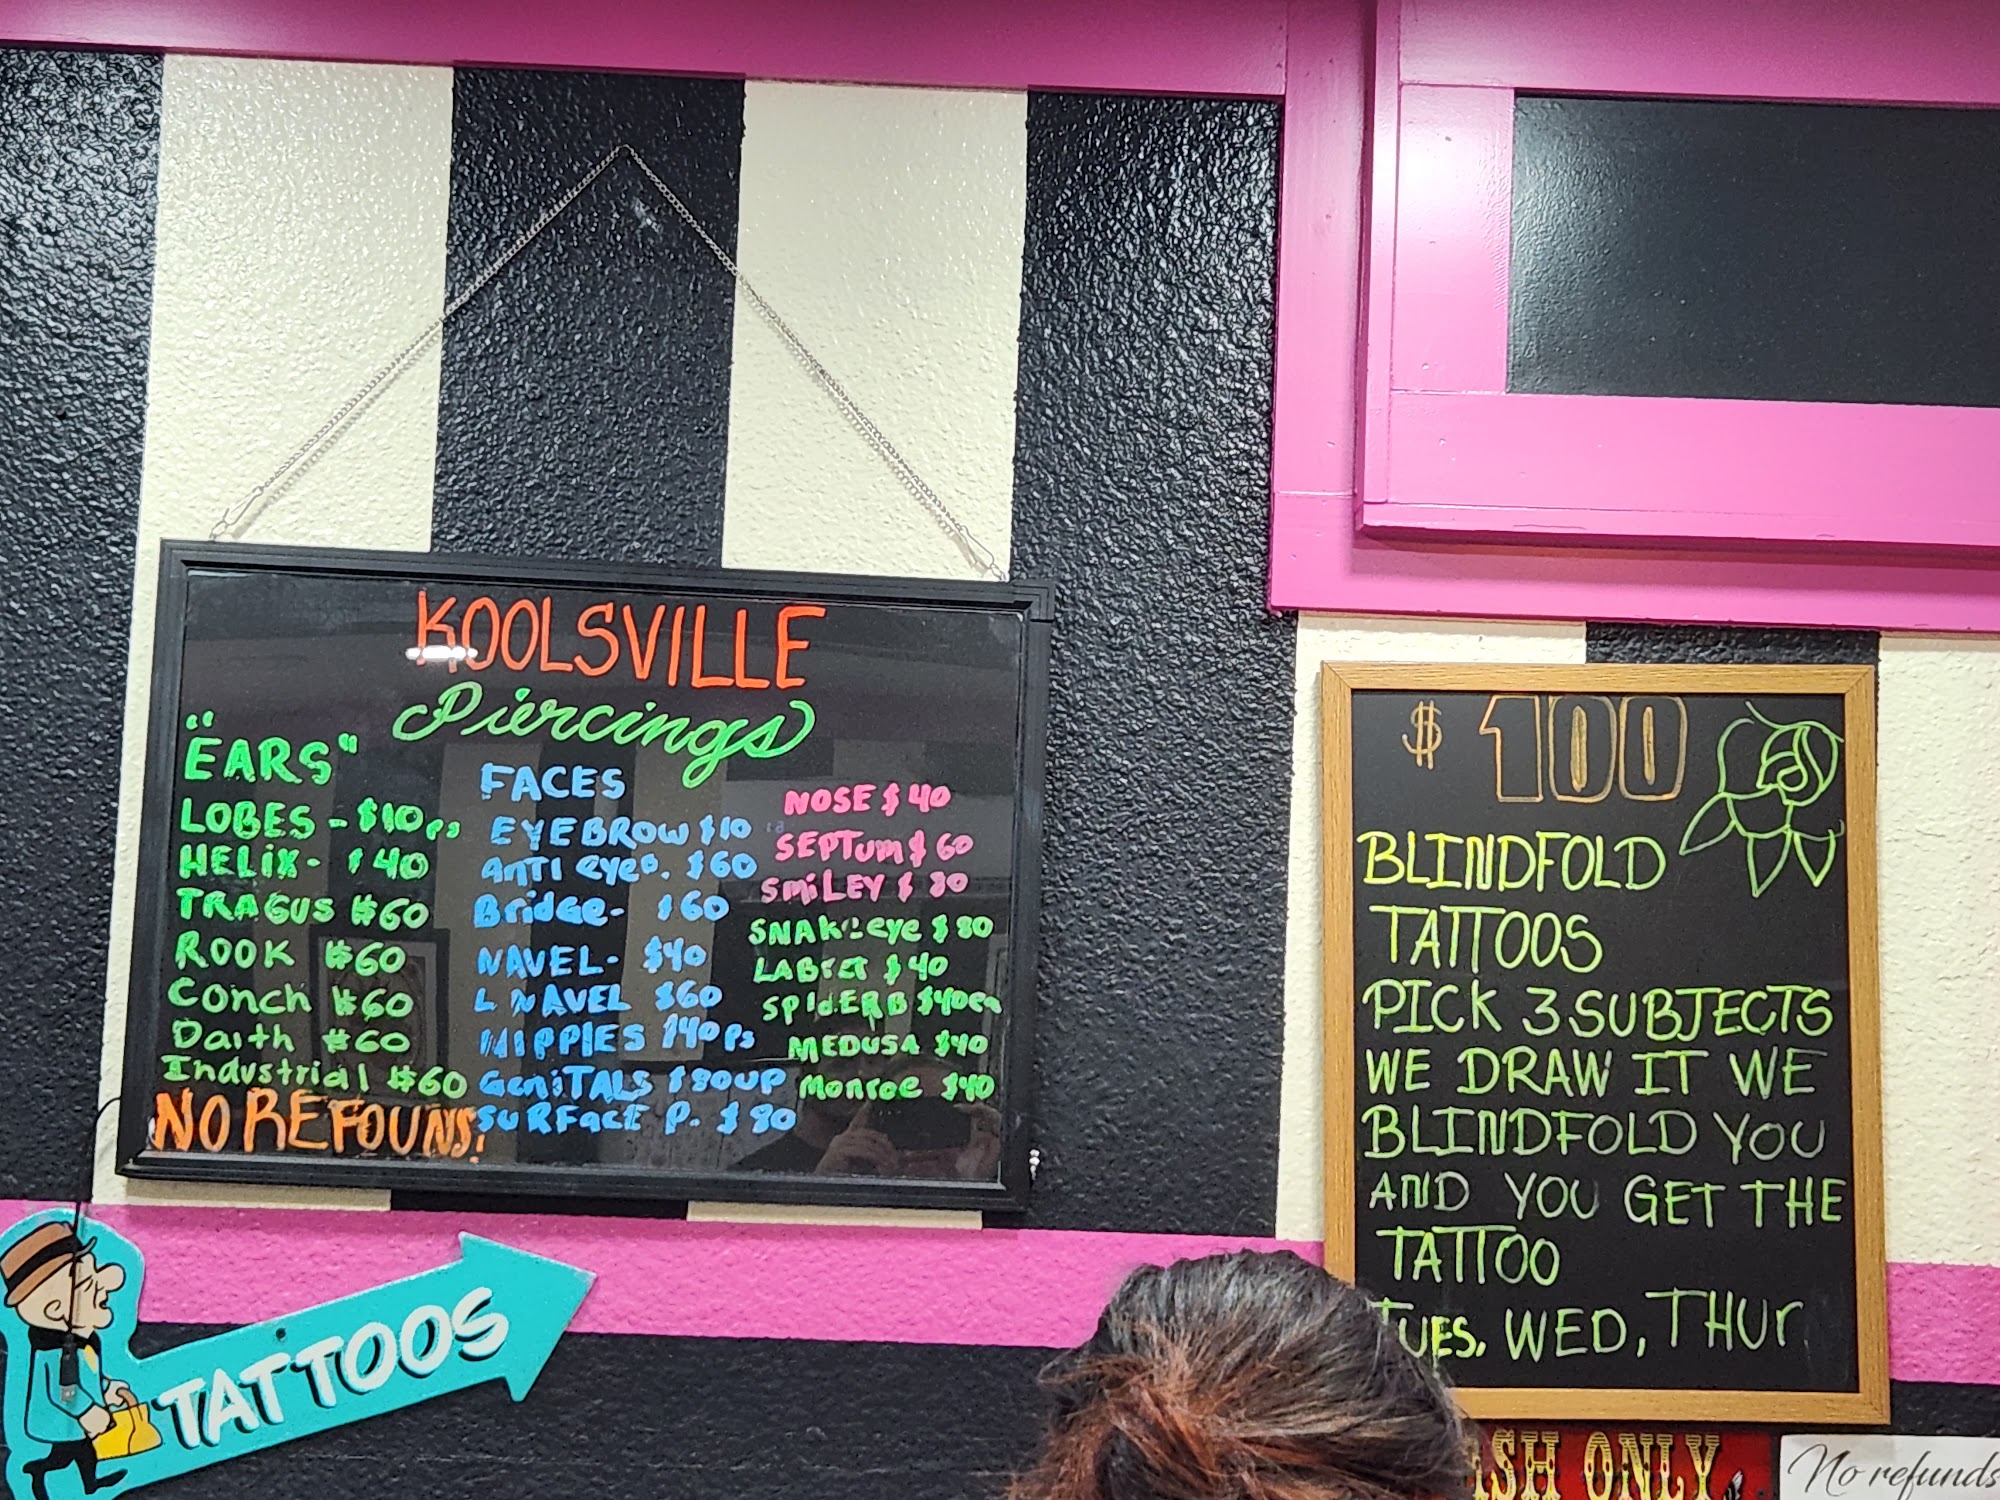 KOOLSVILLE
Piercings
"EARS"
LOBES - $10 ps
HELIX - $40
TRAGUS $60
ROOK $60
Conch $60
Daith $60
Industrial $60
NO REFOUNS!
FACES
EYEBROW $10
ANTI eyeb. $60
Bridge- $60
NAVEL- $40
L NAVEL $60
NIPPLES $40 Ps
GeniTALS $80UP
SURFacE P. $80
NOSE $40
SEPTum $60
SmiLEY $80
SNAKeeye $80
LABret $40
SPidERB $40ea
MEDUSA $40
Monroe $40
$100
BLINDFOLD
TATTOOS
PICK 3 SUBJECTS
WE DRAW IT WE
BLINDFOLD YOU
AND YOU GET THE
TATTOO
TUES. WED, THUr
TATTOOS
ASH ONLY
No refunds